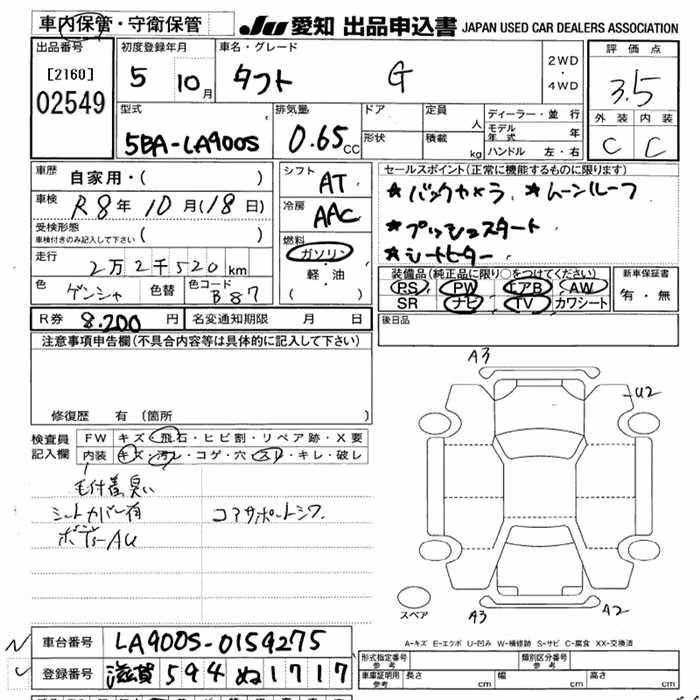 車内保管・守衛保管
JU 愛知 出品申込書 JAPAN USED CAR DEALERS ASSOCIATION
出品番号 初度登録年月 車名・グレード 評価点
[2160] 5 10月 タフト G 2WD・4WD 3.5
02549
型式 排気量 ドア 定員 ディーラー・並行 外装 内装
5BA-LA900S 0.65CC 形状 人 モデル年式 年 C C
積載 kg ハンドル 左・右
車歴 自家用・( ) シフト AT セールスポイント(正常に機能するものに限ります)
車検 R8年10月(18日) 冷房 AAC ★バックカメラ ★ムーンルーフ
受検形態 ( ) ★プッシュスタート
車検付きのみ記入して下さい 燃料 ガソリン ★シートヒーター
走行 2万2千520km 軽・油 装備品(純正品に限り○をつけてください) 新車保証書
色 ゲンシャ 色替 色コード B87 ( ) PS PW エアB AW 有・無
SR ナビ TV カワシート
R券 8.200円 名変通知期限 月 日 後日品
注意事項申告欄(不具合内容等は具体的に記入して下さい)
A3
U2
修復歴 有(箇所 )
検査員記入欄 FW キズ・飛石・ヒビ割・リペア跡・X要
内装 キズ・汚レ・コゲ・穴・スレ・キレ・破レ
毛付着 臭い
シートカバー有 コマサポートシワ
ボデーAU
スペア A3 A2
A-キズ E-エクボ U-凹み W-補修跡 S-サビ C-腐食 XX-交換済
車台番号 LA900S-0159275
形式指定番号 参考 類別区分番号 参考
登録番号 滋賀 594 ぬ1717
車庫証明用 参考 長さ cm 幅 cm 高さ cm